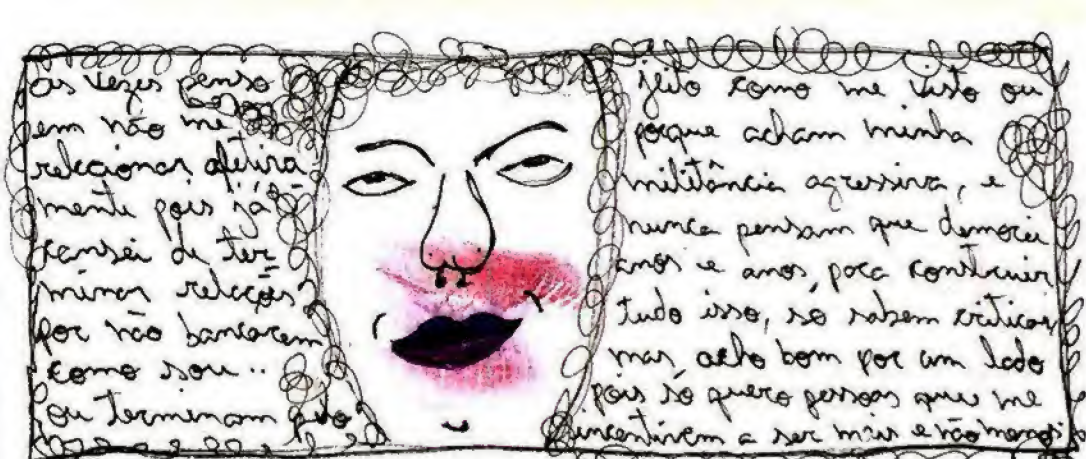 às vezes penso
em não me
relacionar afetiva-
mente pois já
cansei de ter-
minar relações
por não bancarem
como sou..
ou terminam pelo
jeito como me visto ou
porque acham minha
militância agressiva, e
nunca pensam que demorei
anos e anos, para construir
tudo isso, só sabem criticar,
mas, acho bom por um lado
pois só quero pessoas que me
incentivem a ser mais e não menos